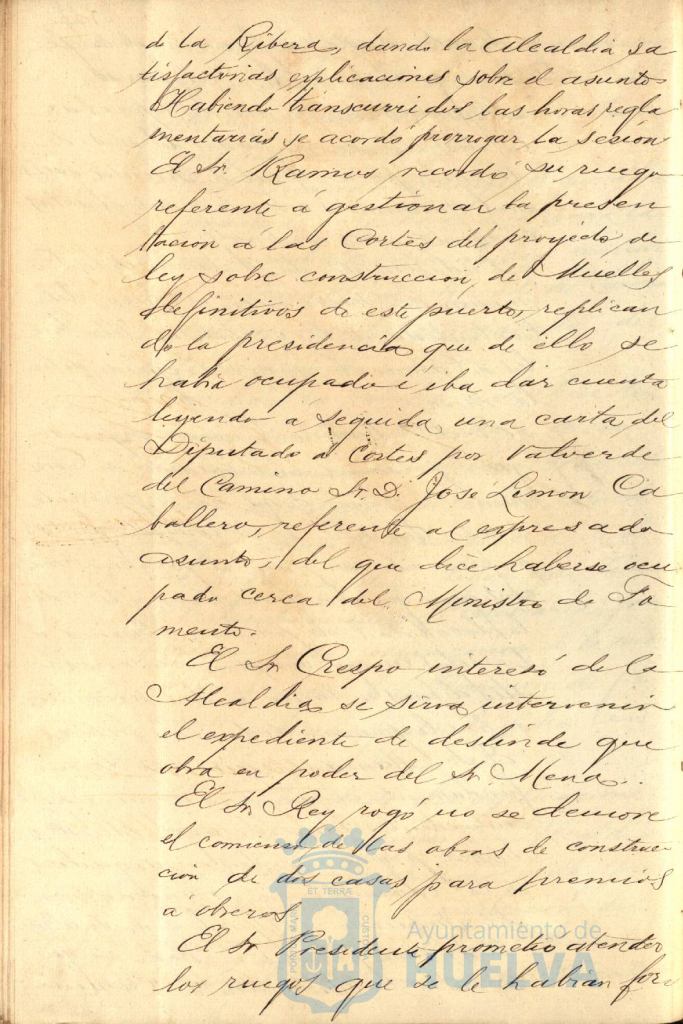 de la Ribera, dando la Alcaldia sa
tisfactorias esplicaciones sobre el asunto
Habiendo transcurridos las horas regla
mentarias se acordó prorrogar la sesión
El Sr. Ramos recordó su ruego
referente á gestionar la presen
tacion á las Cortes del proyecto de
ley sobre construccion de Muelles
definitivos de este puerto, replican
do la presidencia que de ello se
habia ocupado é iba dar cuenta
leyendo á seguida una carta del
Diputado á Cortes por Valverde
del Camino Sr. D. José Limon Ca
ballero, referente al expresado
asunto, del que dice haberse ocu
pado cerca del Ministro de Fo
mento.
El Sr. Crespo interesó de la
Alcaldia se sirva intervenir
el expediente de deslinde que
obra en poder del Sr. Mena.
El Sr. Rey rogó no se demore
el comienzo de las obras de construc
cion de dos casas para premios
á obreros
El Sr. Presidente prometio atender
los ruegos que se le habian for
ET TERRÆ
PORTUS MARIS
CUSTODIA
Ayuntamiento de
HUELVA